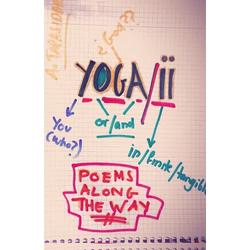 YOGA/ii
You
(who?)
or/and
in/finite/tangible
POEMS
ALONG
THE WAY